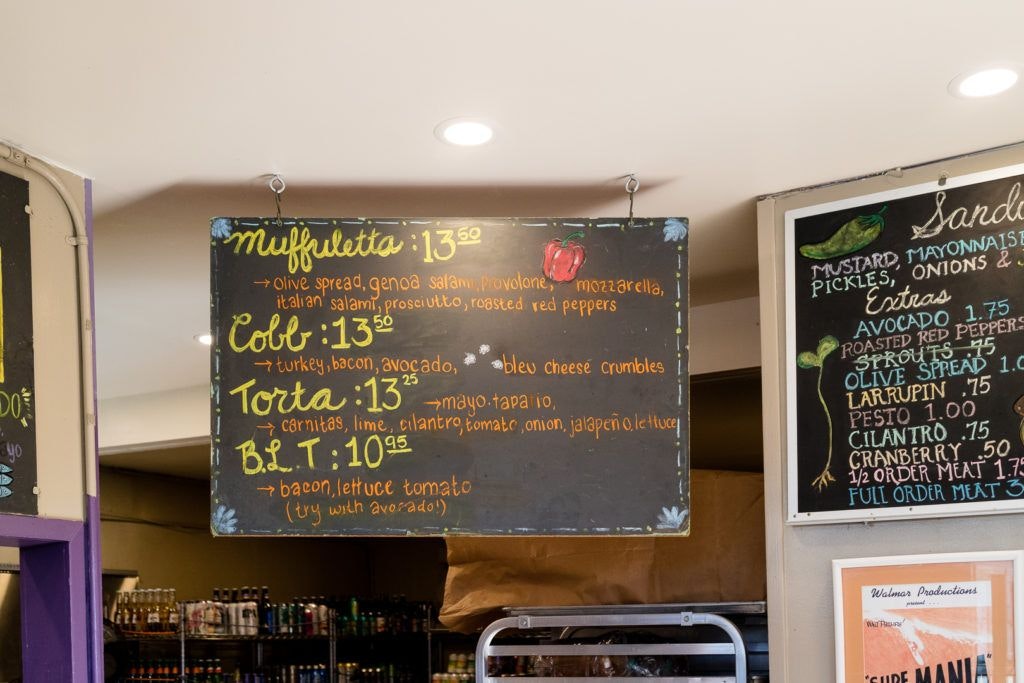 Muffuletta : 13 50
→ olive spread, genoa salami, provolone, mozzarella,
italian salami, prosciutto, roasted red peppers
Cobb : 13 50
→ turkey, bacon, avocado, bleu cheese crumbles
Torta : 13 25 → mayo. tapatio,
→ carnitas, lime, cilantro, tomato, onion, jalapeño, lettuce
B.L.T : 10 95
→ bacon, lettuce tomato
(try with avocado!)
MUSTARD, MAYONNAISE
PICKLES, ONIONS &
Extras
AVOCADO 1.75
ROASTED RED PEPPERS
SPROUTS .75
OLIVE SPREAD 1.0
LARRUPIN .75
PESTO 1.00
CILANTRO .75
CRANBERRY .50
1/2 ORDER MEAT 1.75
FULL ORDER MEAT 3
Walmar Productions
present . . .
"SURF MANIA